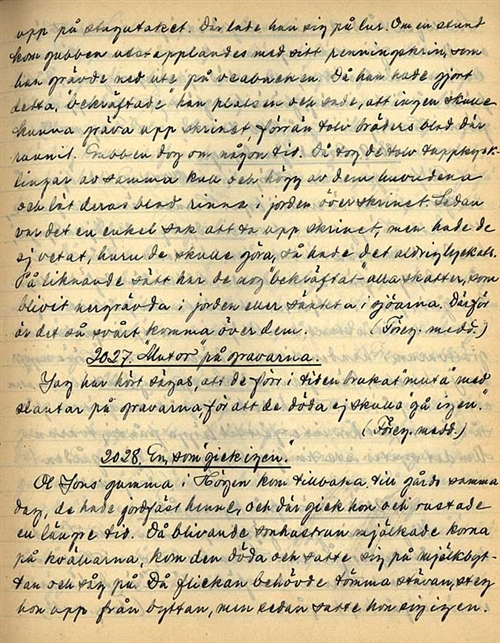 upp på stugutaket. Där lade han sig på lur. Om en stund
kom gubben utstapplandes med sitt penningskrin, som
han grävde ned ute på vedbacken. Då han hade gjort
detta, "bekräftade" han platsen och sade, att ingen skulle
kunna gräva upp skrinet, förrän tolv bröders blod där
runnit. Gubben dog om någon tid. Då tog de tolv tuppkyck-
lingar av samma kull och högg av dem huvudena
och lät deras blod rinna i jorden över skrinet. Sedan
var det en enkel sak att ta upp skrinet, men hade de
ej vetat, huru de skulle göra, så hade det aldrig lyckats.
På liknande sätt har de nog "bekräftat" alla skatter, som
blivit nergrävda i jorden eller sänkta i sjöarna. Därför
är det så svårt komma över dem. (Föreg. medd.)
2027. "Mutor" på gravarna.
Jag har hört sägas, att de förr i tiden brukat "muta" med
slantar på gravarna för att de döda ej skulle "gå igen."
(Föreg. medd.)
2028. En, som "gick igen."
Ol Jons gumma i Högen kom tillbaka till gårds samma
dag, de hade jordfäst henne, och där gick hon och rustade
en längre tid. Då blivande sonhustrun mjölkade korna
på kvällarna, kom den döda och satte sig på mjölkbyt-
tan och såg på. Då flickan behövde tömma stävan, steg
hon upp från byttan, men sedan satte hon sig igen.